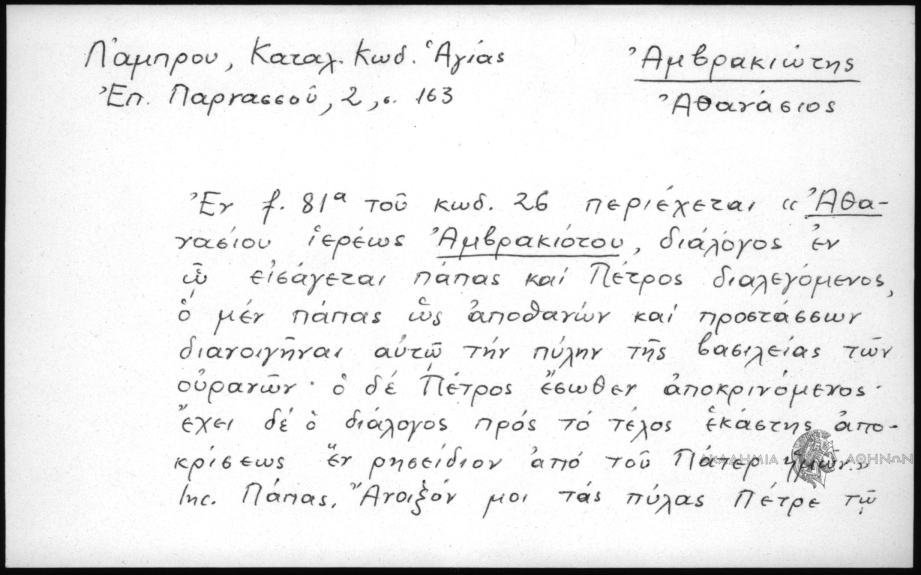 Λάμπρου, Καταλ. Κωδ. Ἁγίας
Ἐπ. Παρνασσοῦ, 2, σ. 163
Ἀμβρακιώτης
Ἀθανάσιος
Ἐν f. 81ᵃ τοῦ κωδ. 26 περιέχεται «Ἀθα-
νασίου ἱερέως Ἀμβρακιότου, διάλογος ἐν
ᾧ εἰσάγεται πάπας καί Πέτρος διαλεγόμενος,
ὁ μέν πάπας ὡς ἀποθανών καί προστάσσων
διανοιγῆναι αὐτῷ τήν πύλην τῆς βασιλείας τῶν
οὐρανῶν· ὁ δέ Πέτρος ἔσωθεν ἀποκρινόμενος·
ἔχει δέ ὁ διάλογος πρός τό τέλος ἑκάστης ἀπο-
κρίσεως ἕν ρησείδιον ἀπό τοῦ Πάτερ ἡμῶν.»
Inc. Πάπας. Ἄνοιξόν μοι τάς πύλας Πέτρε τῷ
ΑΚΑΔΗΜΙΑ ΑΘΗΝΩΝ